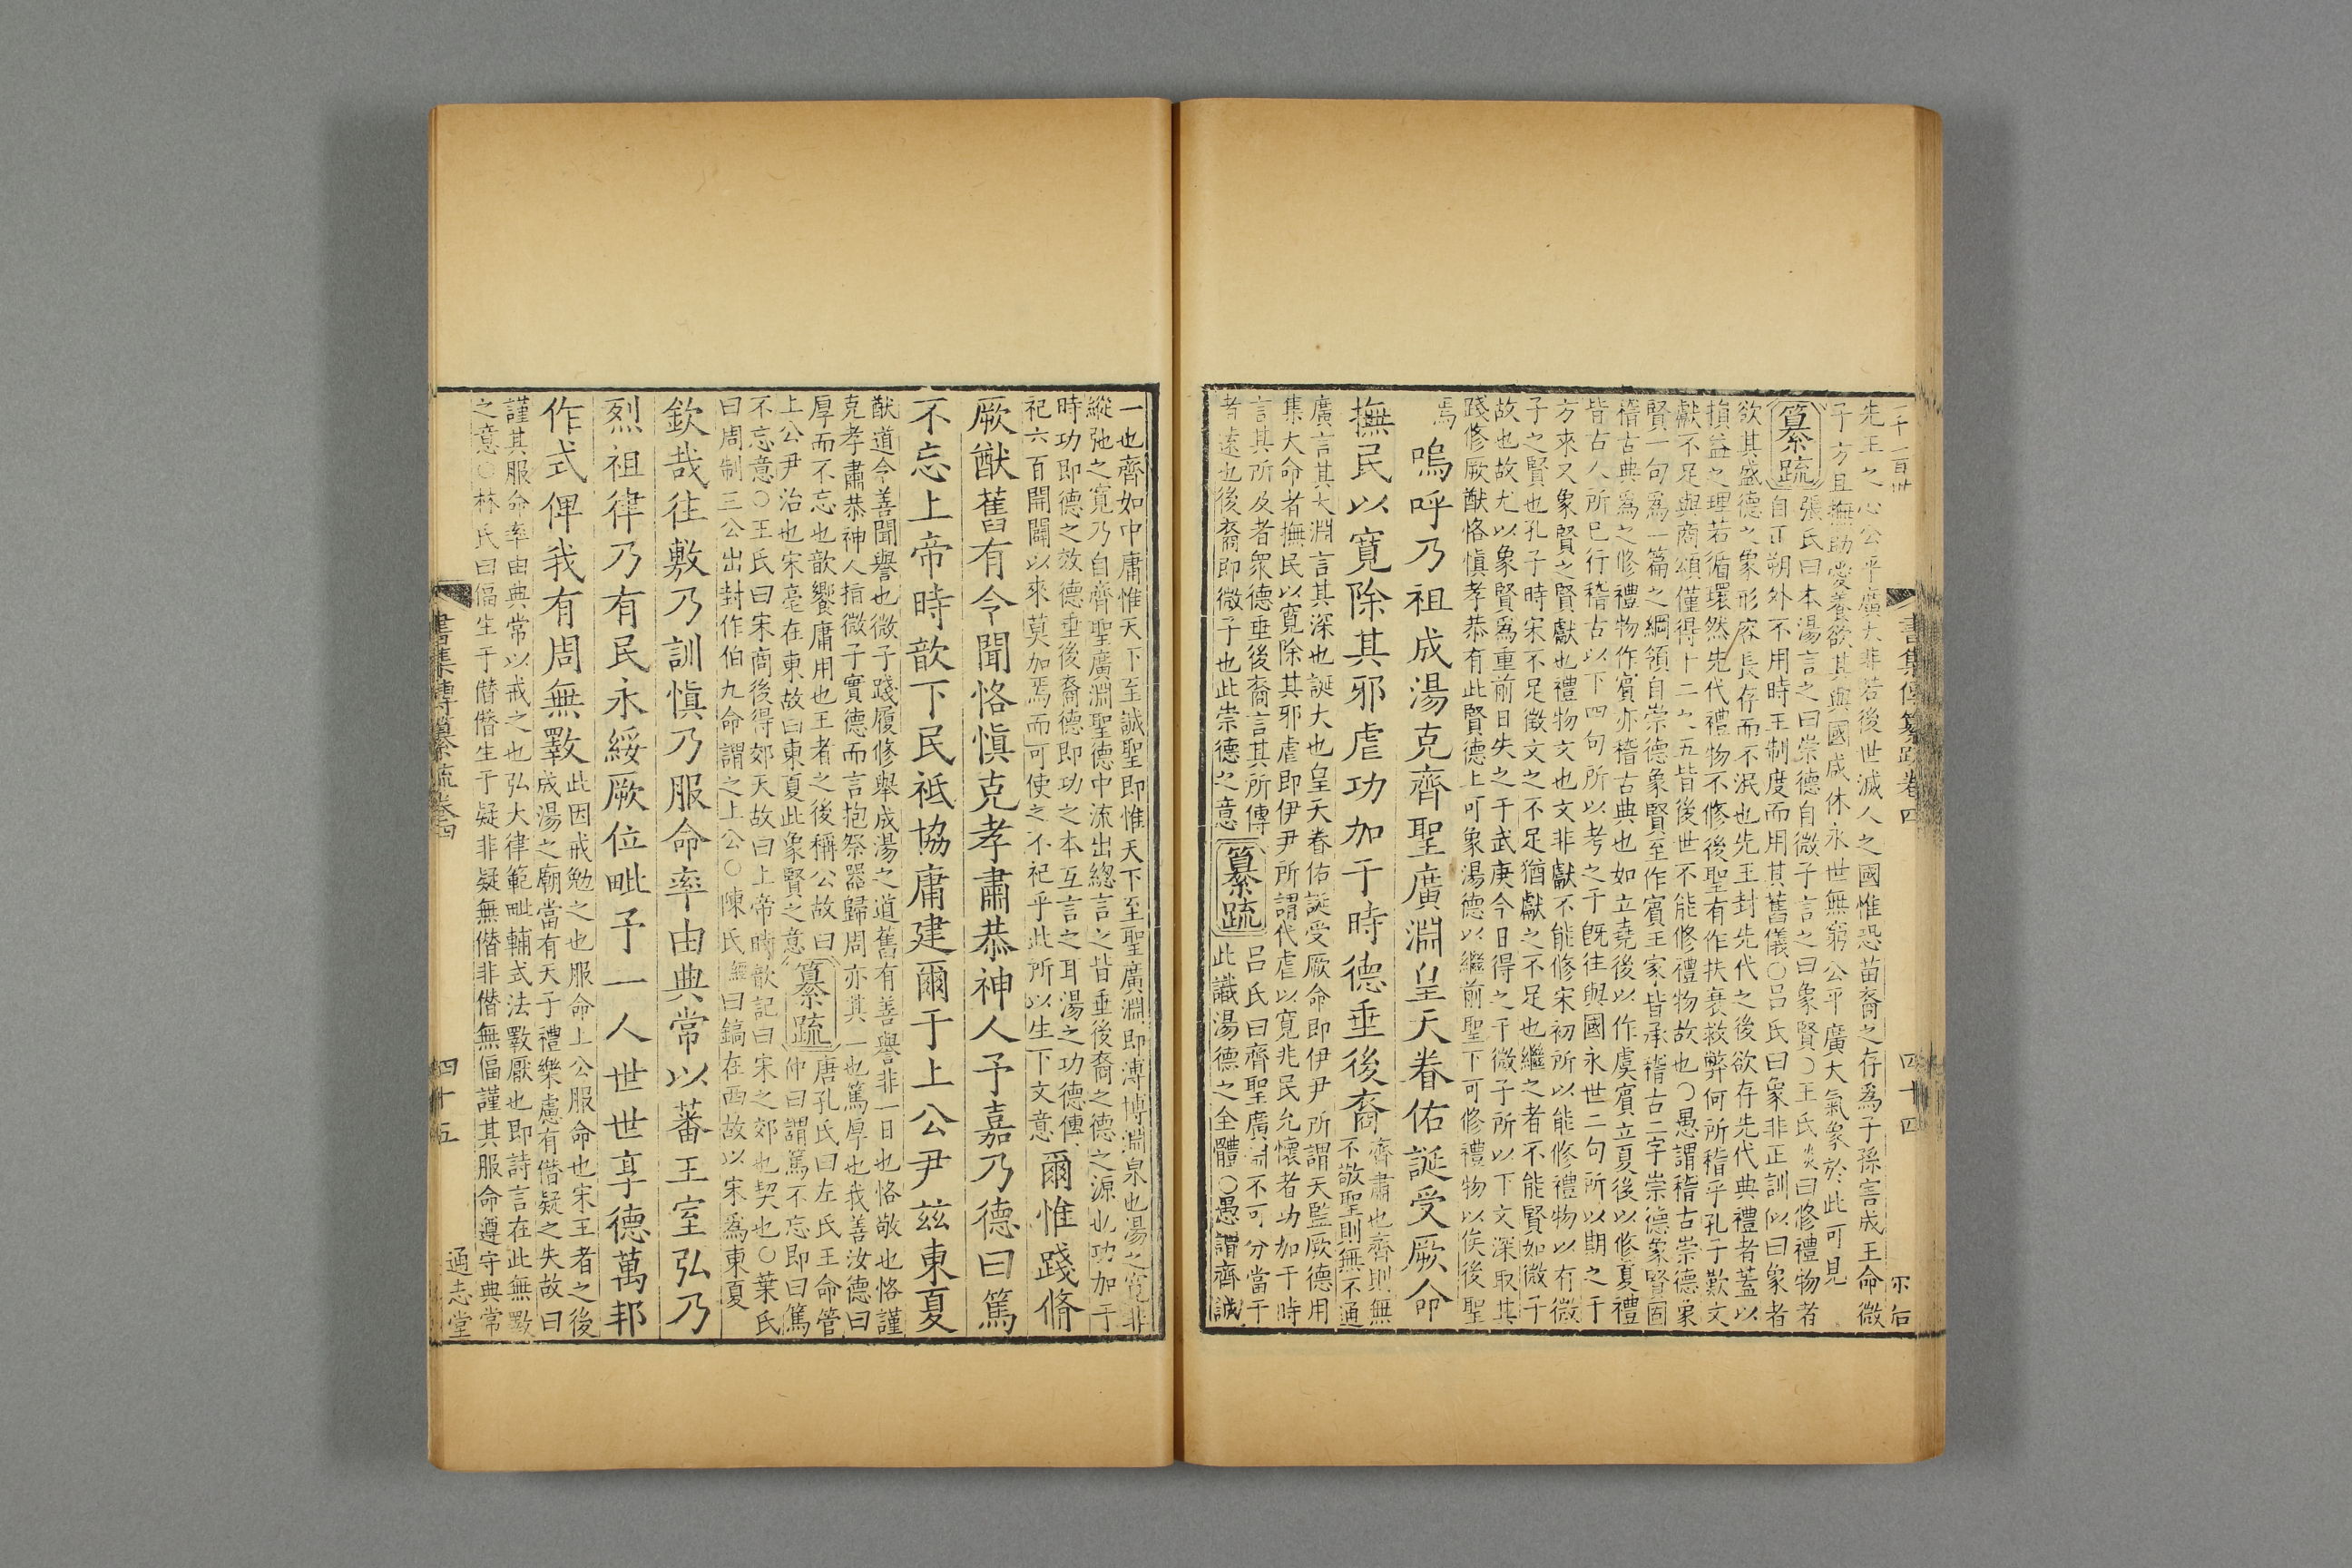 書集傳纂疏卷四
四十四
先王之心公平廣大非若後世滅人之國惟恐苗裔之存爲子孫害成王命微
子方且撫助愛養欲其與國咸休永世無窮公平廣大氣象於此可見
纂疏
張氏曰本湯言之曰崇德自微子言之曰象賢○王氏炎曰修禮物者
自正朔外不用時王制度而用其舊儀○呂氏曰象非正訓似曰象者
欲其盛德之象形容長存而不泯也先王封先代之後欲存先代典禮者蓋以
損益之理若循環然先代禮物不修後聖有作扶衰救弊何所稽乎孔子歎文
獻不足與商頌僅得十二之五皆後世不能修禮物故也○愚謂稽古崇德象
賢一句爲一篇之綱領自崇德象賢至作賓王家皆承稽古二字崇德象賢固
稽古典爲之修禮物作賓亦稽古典也如立堯後以作虞賓立夏後以修夏禮
皆古人所已行稽古以下四句所以考之于旣往與國永世二句所以期之于
方來又象賢之賢獻也禮物文也文非獻不能修宋初所以能修禮物以有微
子之賢也孔子時宋不足徵文之不足猶獻之不足也繼之者不能賢如微子
故也故尤以象賢爲重前日失之于武庚今日得之于微子所以下文深取其
踐修厥猷恪愼孝恭有此賢德上可象湯德以繼前聖下可修禮物以俟後聖
焉嗚呼乃祖成湯克齊聖廣淵皇天眷佑誕受厥命
撫民以寬除其邪虐功加于時德垂後裔
齊肅也齊則無
不敬聖則無不通
廣言其大淵言其深也誕大也皇天眷佑誕受厥命即伊尹所謂天監厥德用
集大命者撫民以寬除其邪虐即伊尹所謂代虐以寬兆民允懷者功加于時
言其所及者衆德垂後裔言其所傳
者遠也後裔即微子也此崇德之意
纂疏
呂氏曰齊聖廣淵不可分當于
此識湯德之全體○愚謂齊誠
一也齊如中庸惟天下至誠聖即惟天下至聖廣淵即溥博淵泉也湯之寬非
縱弛之寬乃自齊聖廣淵聖德中流出總言之皆垂後裔之德之源也功加于
時功即德之效德垂後裔德即功之本互言之耳湯之功德傳
祀六百開闢以來莫加焉而可使之不祀乎此所以生下文意
爾惟踐修
厥猷舊有令聞恪愼克孝肅恭神人予嘉乃德曰篤
不忘上帝時歆下民祗協庸建爾于上公尹茲東夏
猷道令善聞譽也微子踐履修舉成湯之道舊有善譽非一日也恪敬也恪謹
克孝肅恭神人指微子實德而言抱祭器歸周亦其一也篤厚也我善汝德曰
厚而不忘也歆饗庸用也王者之後稱公故曰
上公尹治也宋亳在東故曰東夏此象賢之意
纂疏
唐孔氏曰左氏王命管
仲曰謂篤不忘即曰篤
不忘意○王氏曰宋商後得郊天故曰上帝時歆記曰宋之郊也契也○葉氏
曰周制三公出封作伯九命謂之上公○陳氏經曰鎬在西故以宋爲東夏
欽哉往敷乃訓愼乃服命率由典常以蕃王室弘乃
烈祖律乃有民永綏厥位毗予一人世世享德萬邦
作式俾我有周無斁
此因戒勉之也服命上公服命也宋王者之後
成湯之廟當有天子禮樂慮有僭疑之失故曰
謹其服命率由典常以戒之也弘大律範毗輔式法斁厭也即詩言在此無斁
之意○林氏曰偪生于僭僭生于疑非疑無僭非僭無偪謹其服命遵守典常
書集傳纂疏卷四
四十五
通志堂